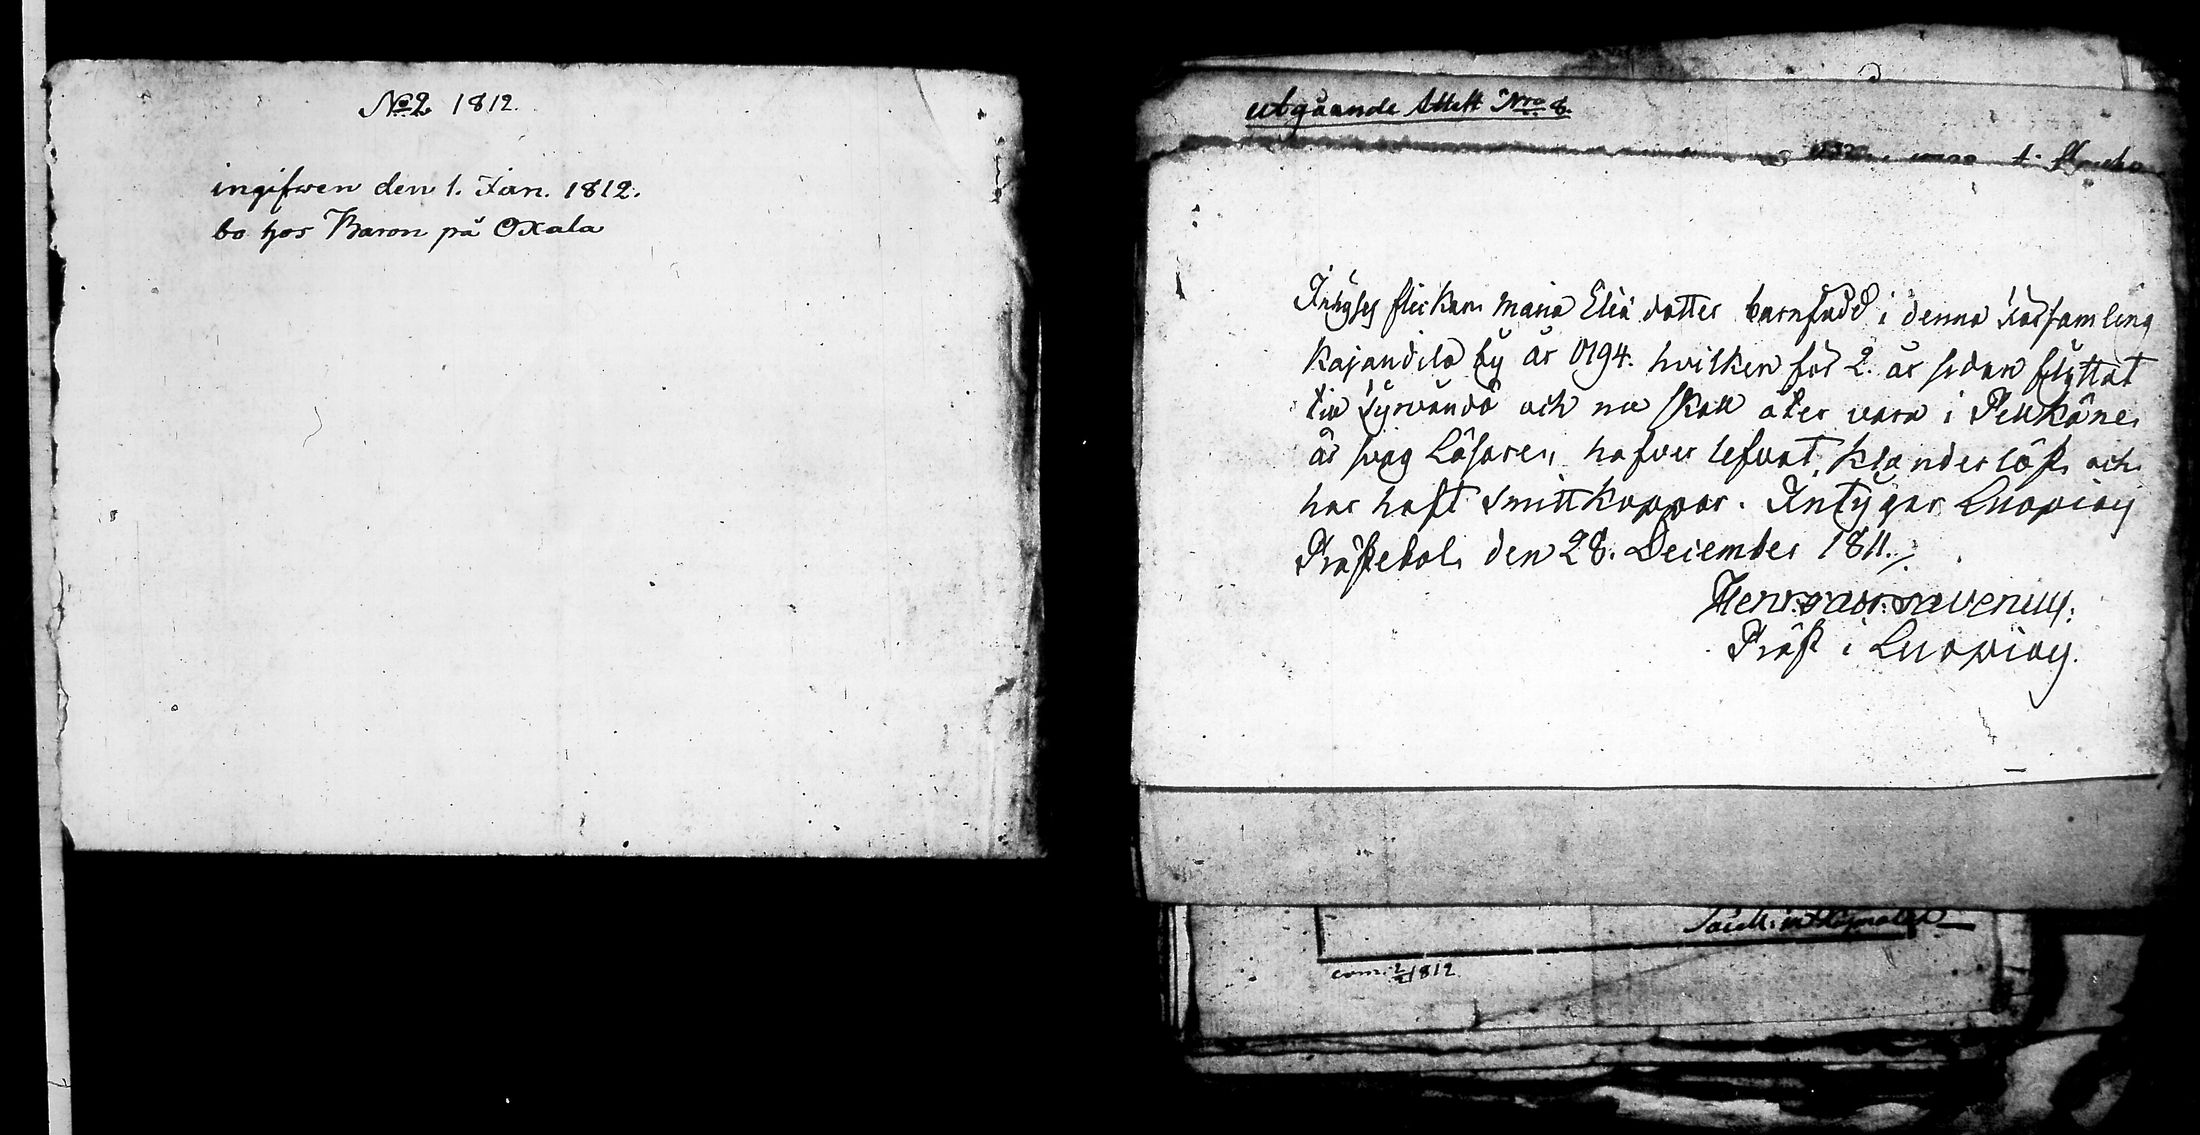 No 2. 1812.
ingifwen den 1. Jan. 1812.
bo hos Baron på Oxala
utgåande Attest Nro 8.
flickan Maria Eliä dotter barnfödd i denna Församling
Kajandila by år 1794. hvilken för 2. år sedan flyttat
till Tyrvändö och nu skall åter vara i Pelkäne,
är svag Läsare, hafver lefvat klanderlöst och
har haft Smittkoppor. Intygar Luopiois
Prästebol den 28. December 1811./.
Präst i Luopiois.
1812